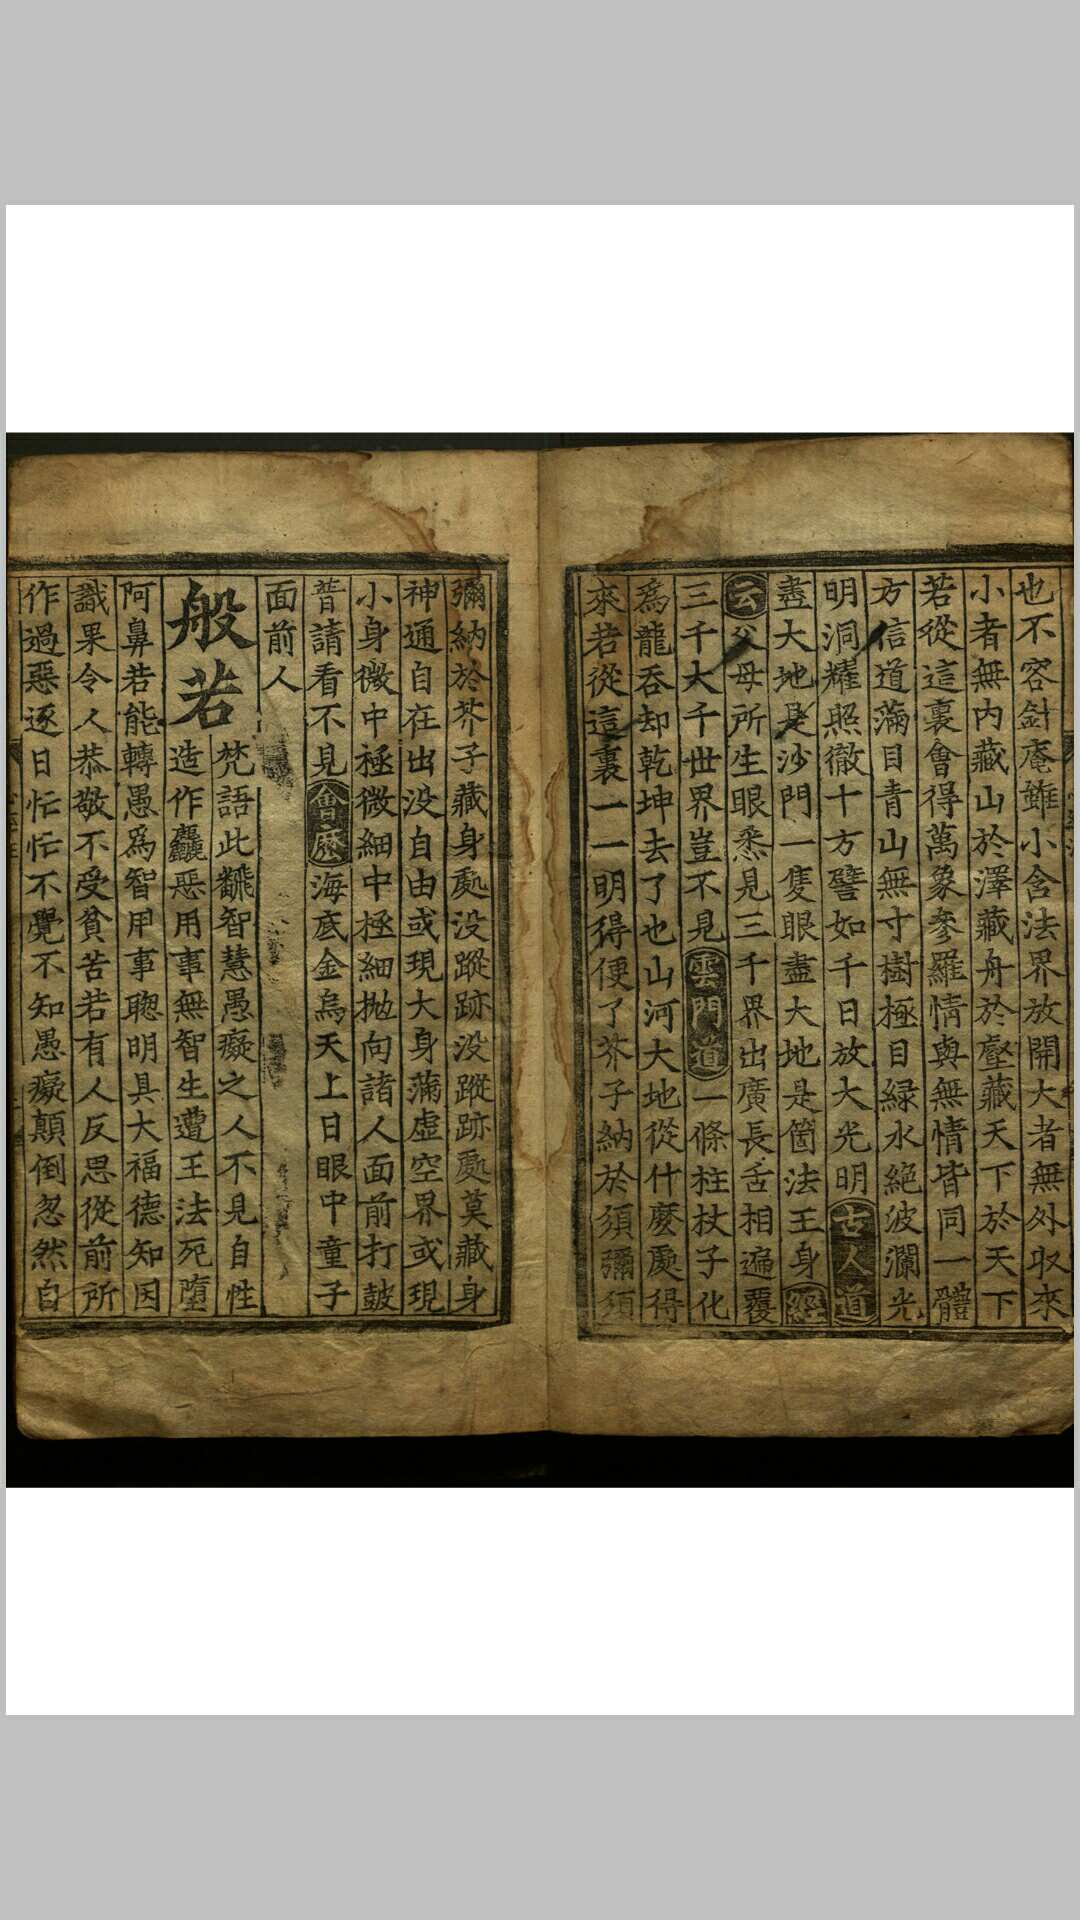 也不容針庵雖小含法界放開大者無外收來
小者無内藏山於澤藏舟於壑藏天下於天下
若從這裏會得萬象參羅情與無情皆同一體
方信道滿目青山無寸樹極目緑水絶波瀾光
明洞耀照徹十方譬如千日放大光明古人道
盡大地是沙門一隻眼盡大地是箇法王身經
云父母所生眼悉見三千界出廣長舌相遍覆
三千大千世界豈不見雲門道一條柱杖子化
爲龍吞却乾坤去了也山河大地從什麽處得
來若從這裏一一明得便了芥子納於須彌須
彌納於芥子藏身處没蹤跡没蹤跡處莫藏身
神通自在出没自由或現大身滿虚空界或現
小身微中極微細中極細抛向諸人面前打鼓
普請看不見會麽海底金烏天上日眼中童子
面前人
般若
梵語此飜智慧愚癡之人不見自性
造作麤惡用事無智生遭王法死墮
阿鼻若能轉愚爲智用事聰明具大福德知因
識果令人恭敬不受貧苦若有人反思從前所
作過惡逐日忙忙不覺不知愚癡顛倒忽然自